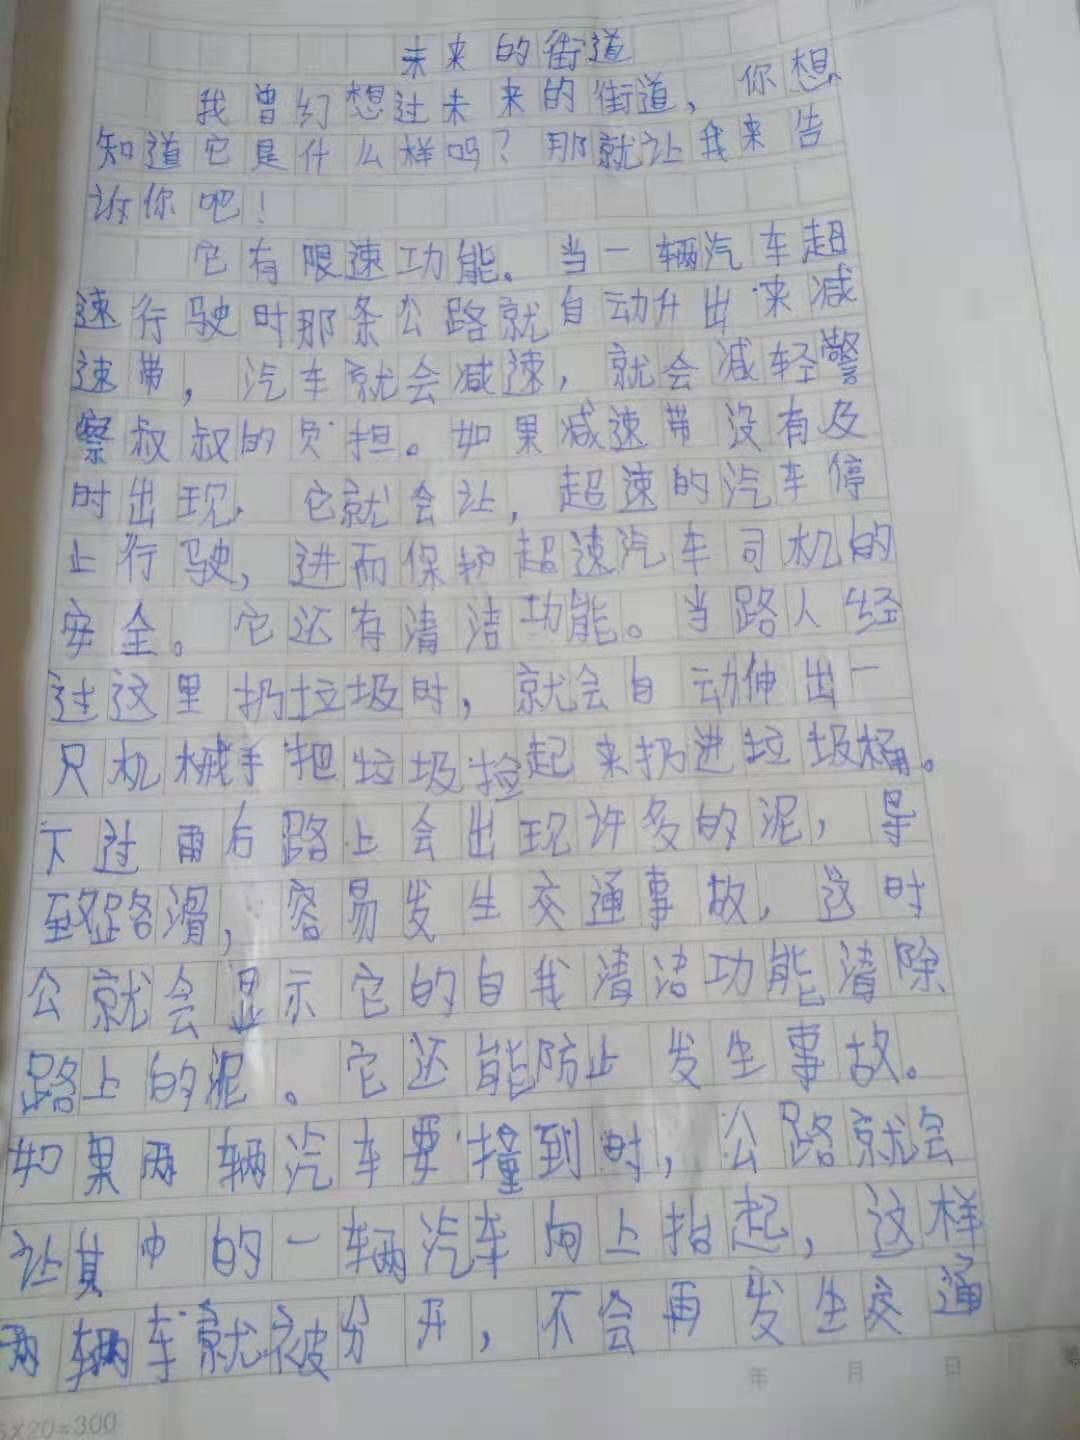 未来的街道
我曾幻想过未来的街道，你想
知道它是什么样吗？那就让我来告
诉你吧！
它有限速功能。当一辆汽车超
速行驶时那条公路就自动升出来减
速带，汽车就会减速，就会减轻警
察叔叔的负担。如果减速带没有及
时出现，它就会让，超速的汽车停
止行驶，进而保护超速汽车司机的
安全。它还有清洁功能。当路人经
过这里扔垃圾时，就会自动伸出一
只机械手把垃圾捡起来扔进垃圾桶。
下过雨后路上会出现许多的泥，导
致路滑，容易发生交通事故，这时
公就会显示它的自我清洁功能清除
路上的泥。它还能防止发生事故。
如果两辆汽车要撞到时，公路就会
让其中的一辆汽车向上抬起，这样
两辆车就被分开，不会再发生交通
年 月 日 第
5×20=300